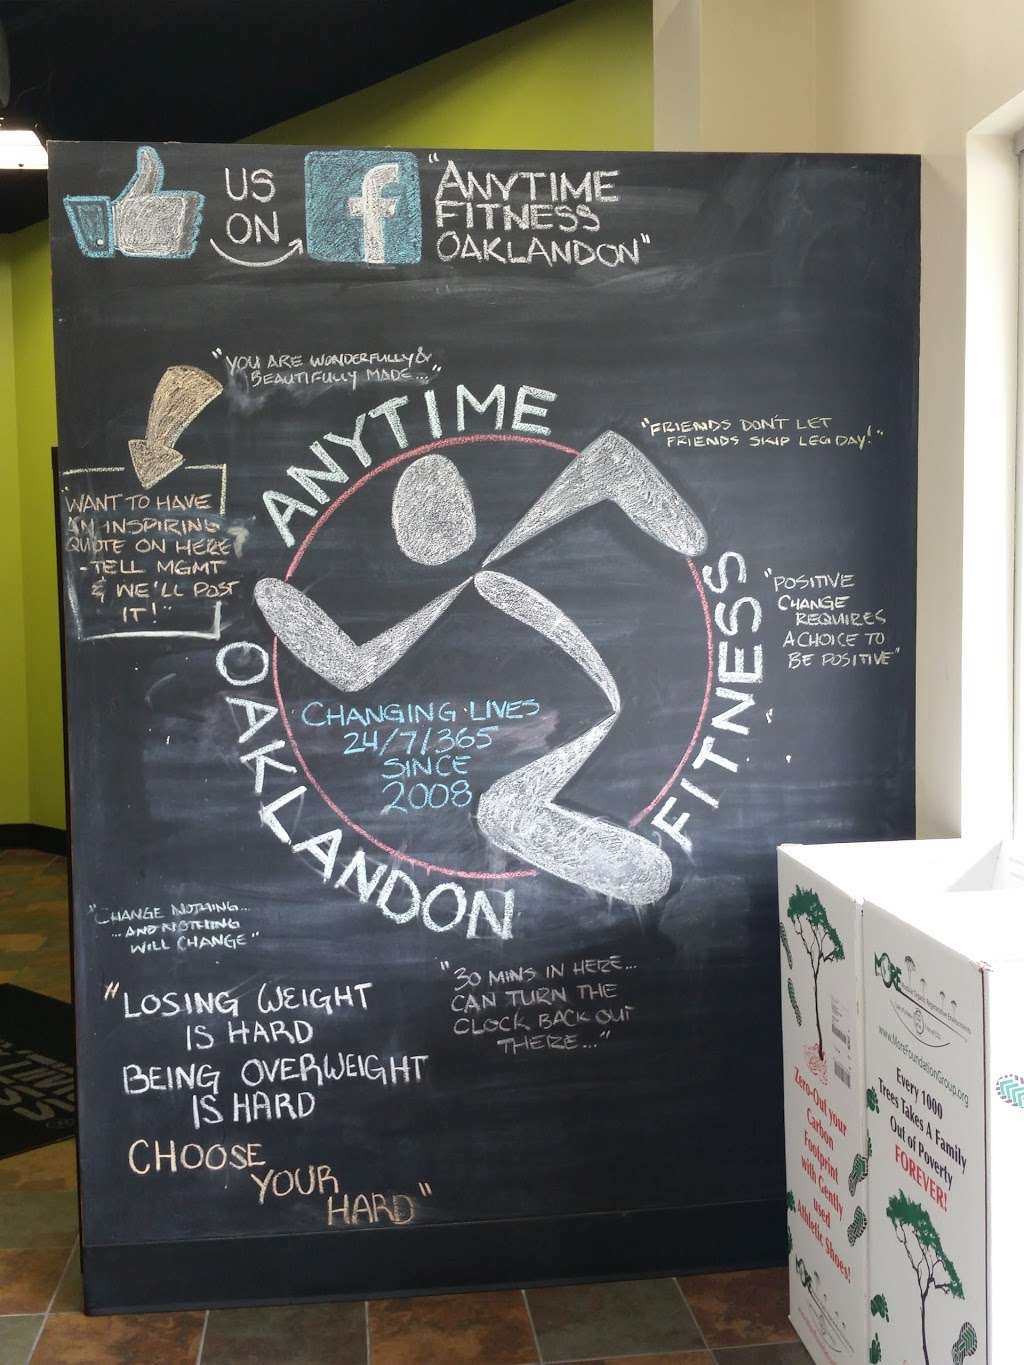 US
ON
f
"ANYTIME
FITNESS
OAKLANDON"
"YOU ARE WONDERFULLY &
BEAUTIFULLY MADE..."
"FRIENDS DON'T LET
FRIENDS SKIP LEG DAY!"
"WANT TO HAVE
AN INSPIRING
QUOTE ON HERE?
-TELL MGMT
& WE'LL POST
IT!"
ANYTIME
FITNESS
OAKLANDON
"POSITIVE
CHANGE
REQUIRES
A CHOICE TO
BE POSITIVE"
CHANGING LIVES
24/7/365
SINCE
2008
"CHANGE NOTHING...
...AND NOTHING
WILL CHANGE"
"30 MINS IN HERE...
CAN TURN THE
CLOCK BACK OUT
THERE..."
"LOSING WEIGHT
IS HARD
BEING OVERWEIGHT
IS HARD
CHOOSE
YOUR
HARD"
Zero-Out your
Carbon
Footprint
with Gently
used
Athletic Shoes!
MORE
www.MoreFoundationGroup.org
Every 1000
Trees Takes A Family
Out of Poverty
FOREVER!
MORE